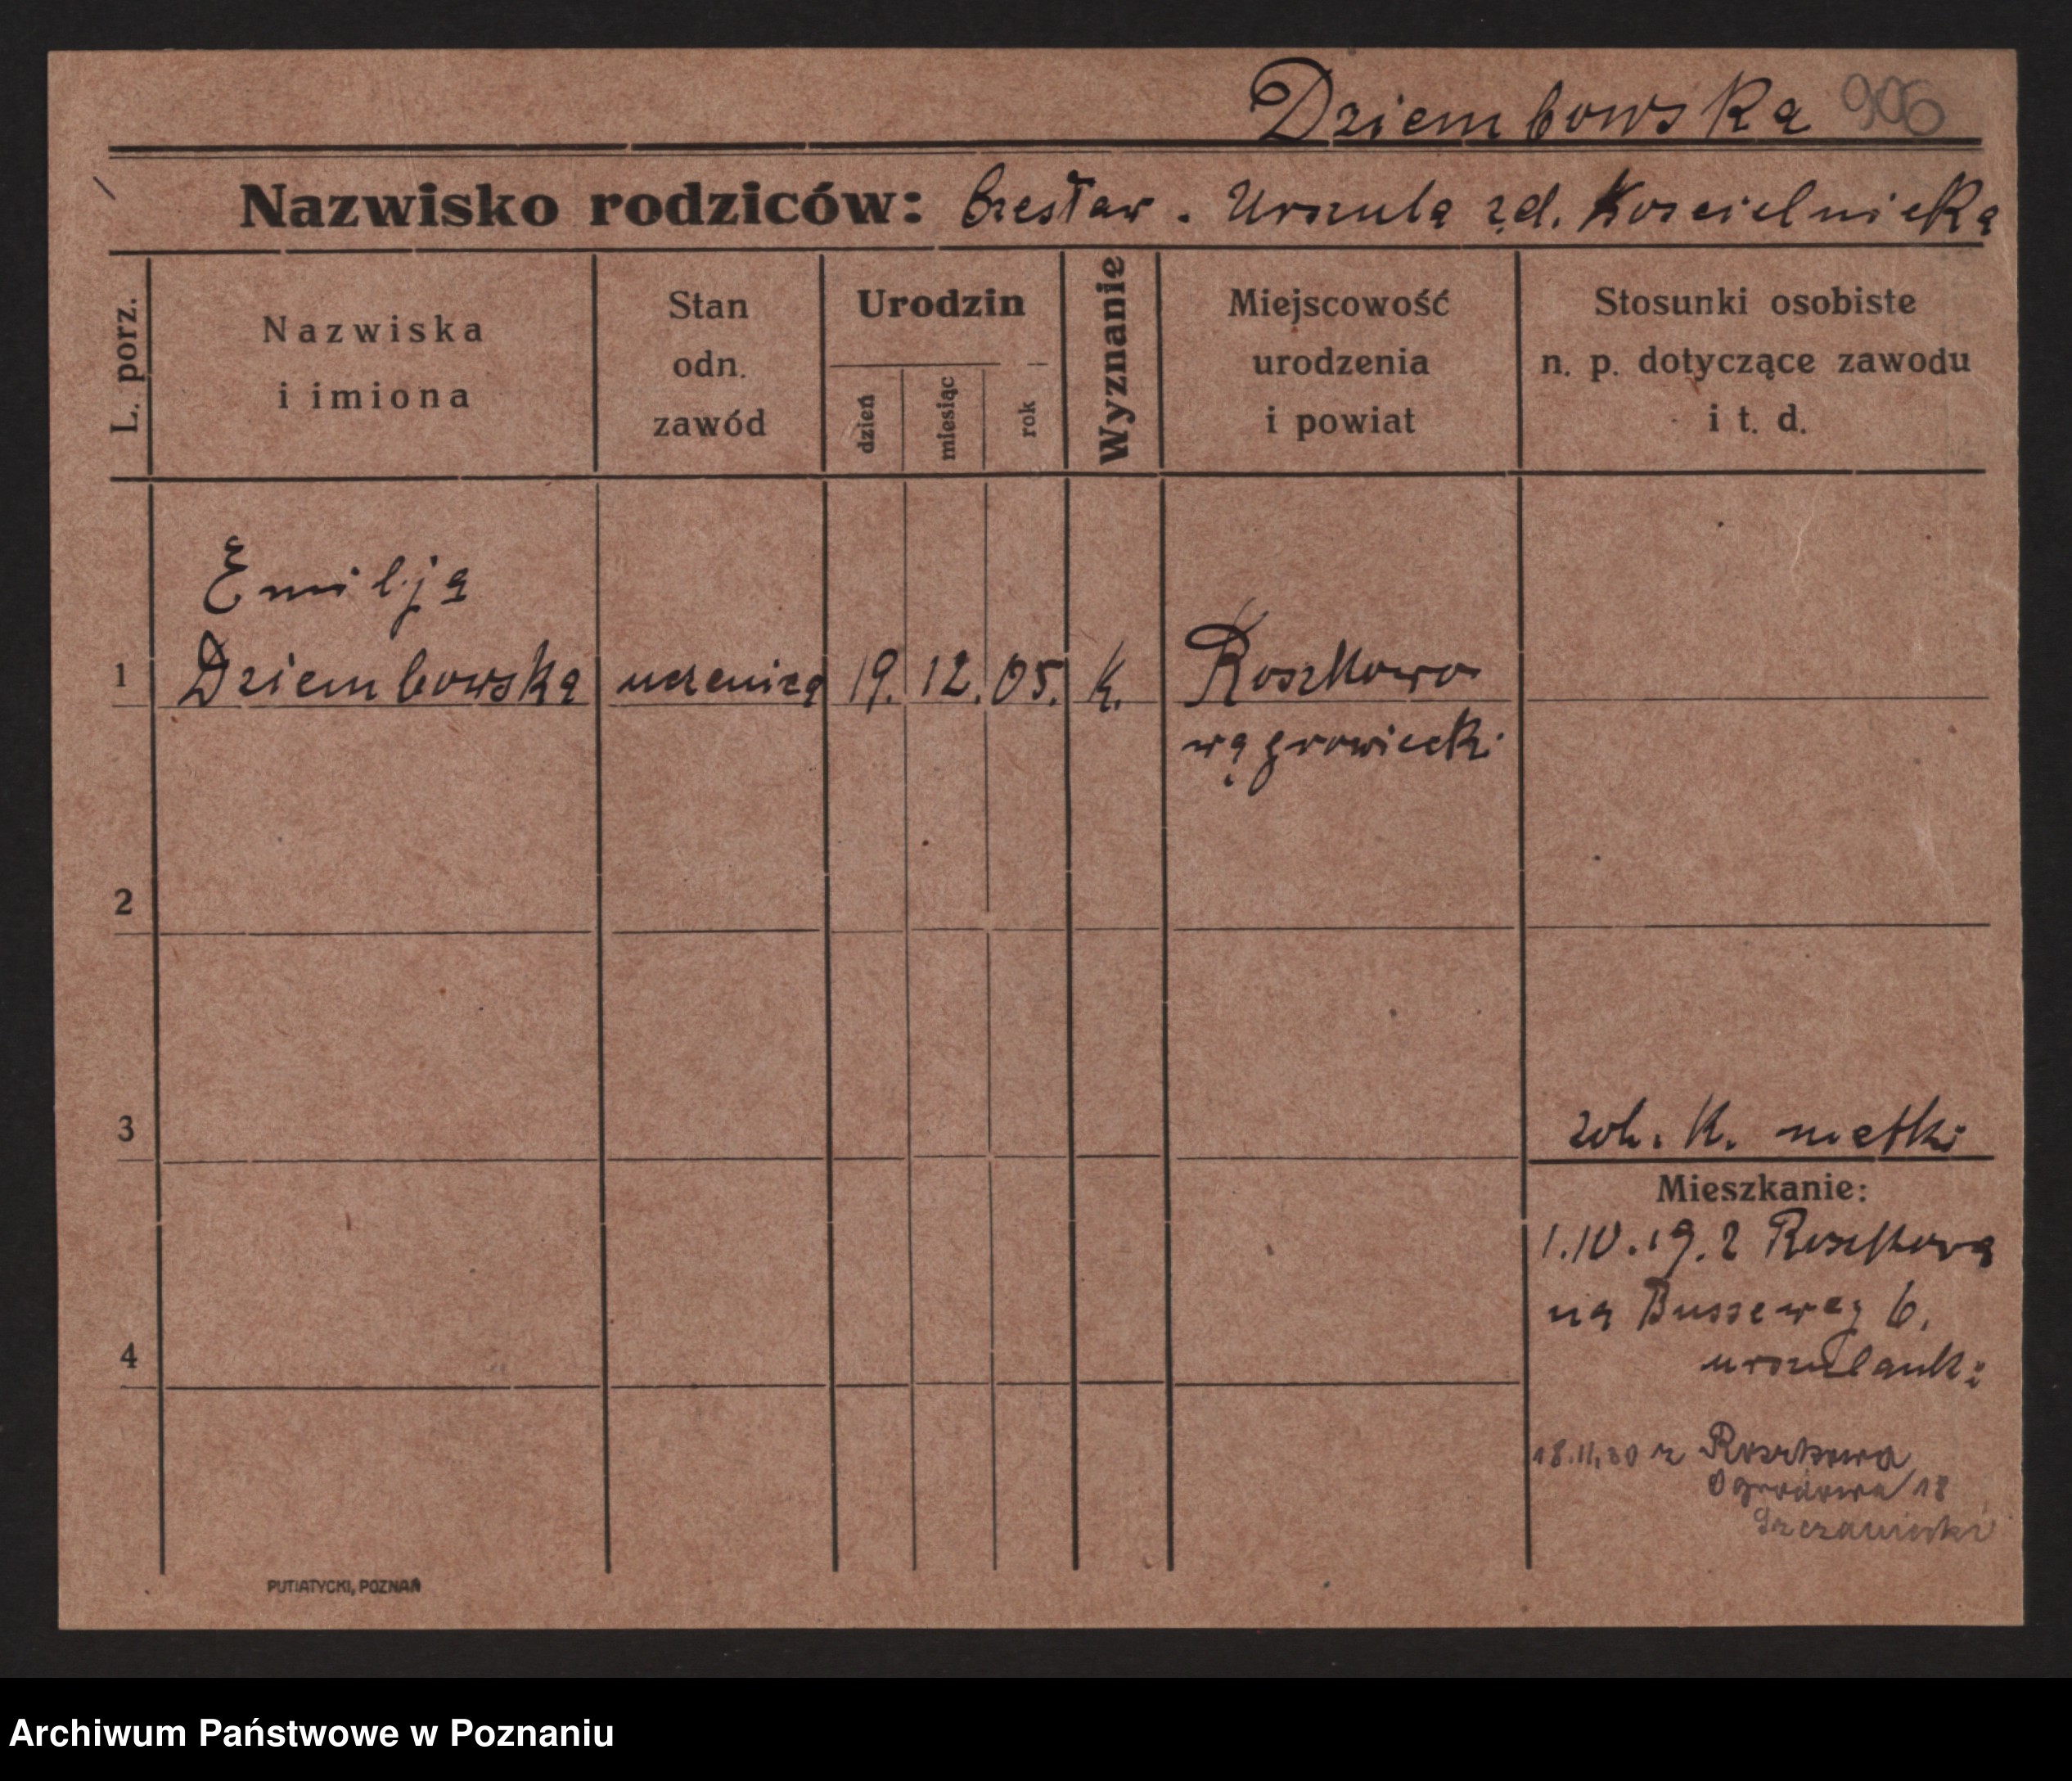 Dziembowska 906
Nazwisko rodziców: Czesław. Urszula zd. Koscielnicka
L. porz.
Nazwiska
i imiona
Stan
odn.
zawód
Urodzin
dzień
miesiąc
rok
Wyznanie
Miejscowość
urodzenia
i powiat
Stosunki osobiste
n. p. dotyczące zawodu
i t. d.
Emilja
1 Dziembowska uczenica 19. 12. 05. K. Roszkowo
wągrowiecki
2
3
zob. K. matki
Mieszkanie:
1.10.19. z Roszkowa
na Busseweg 6.
urszulanki
4
18.11.30 z Roszkowa
Ogrodowa 18
PUTIATYCKI, POZNAŃ
Archiwum Państwowe w Poznaniu